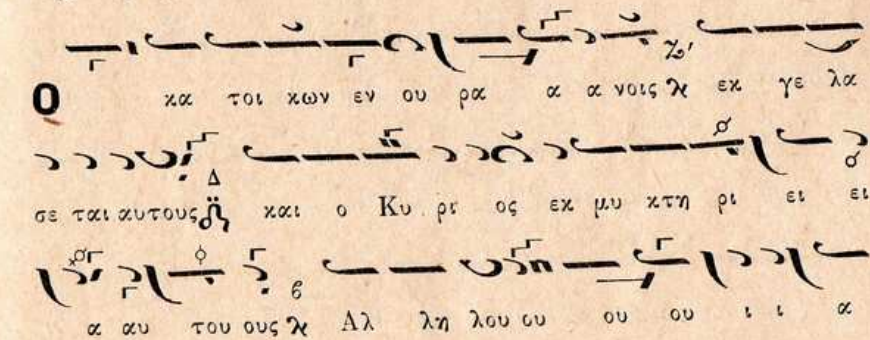 Ο κα τοι κων εν ου ρα α α νοις ϗ εκ γε λα
σε ται αυτους και ο Κυ ρι ος εκ μυ κτη ρι ει ει
α αυ του ους ϗ Αλ λη λου ου ου ου ι ι α